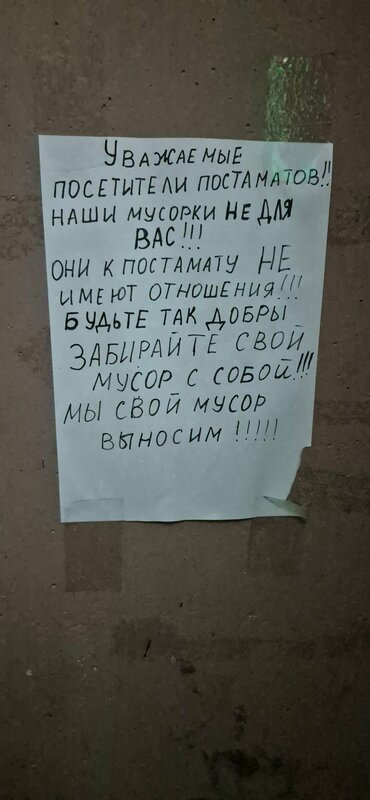 Уважаемые
посетители постаматов!!
наши мусорки не для
вас!!!
они к постамату не
имеют отношения!!!
будьте так добры
забирайте свой
мусор с собой!!!
мы свой мусор
выносим!!!!!